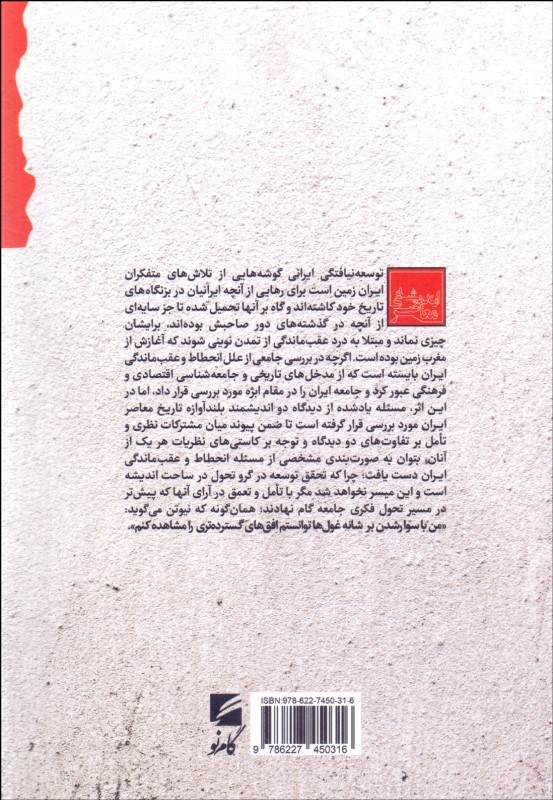 توسعه‌نیافتگی ایرانی گوشه‌هایی از تلاش‌های متفکران
ایران زمین است برای رهایی از آنچه ایرانیان در بزنگاه‌های
تاریخ خود کاشته‌اند و گاه بر آنها تحمیل شده تا جز سایه‌ای
از آنچه در گذشته‌های دور صاحبش بوده‌اند، برایشان
چیزی نماند و مبتلا به درد عقب‌ماندگی از تمدن نوینی شوند که آغازش از
مغرب زمین بوده است. اگرچه در بررسی جامعی از علل انحطاط و عقب‌ماندگی
ایران بایسته است که از مدخل‌های تاریخی و جامعه‌شناسی اقتصادی و
فرهنگی عبور کرد و جامعه ایران را در مقام ابژه مورد بررسی قرار داد، اما در
این اثر، مسئله یادشده از دیدگاه دو اندیشمند بلندآوازه تاریخ معاصر
ایران مورد بررسی قرار گرفته است تا ضمن پیوند میان مشترکات نظری و
تأمل بر تفاوت‌های دو دیدگاه و توجه بر کاستی‌های نظریات هر یک از
آنان، بتوان به صورت‌بندی مشخصی از مسئله انحطاط و عقب‌ماندگی
ایران دست یافت؛ چرا که تحقق توسعه در گرو تحول در ساحت اندیشه
است و این میسر نخواهد شد مگر با تأمل و تعمق در آرای آنها که پیش‌تر
در مسیر تحول فکری جامعه گام نهادند؛ همان‌گونه که نیوتن می‌گوید:
«من با سوار شدن بر شانه غول‌ها توانستم افق‌های گسترده‌تری را مشاهده کنم».
ISBN:978-622-7450-31-6
9 786227 450316
گام نو